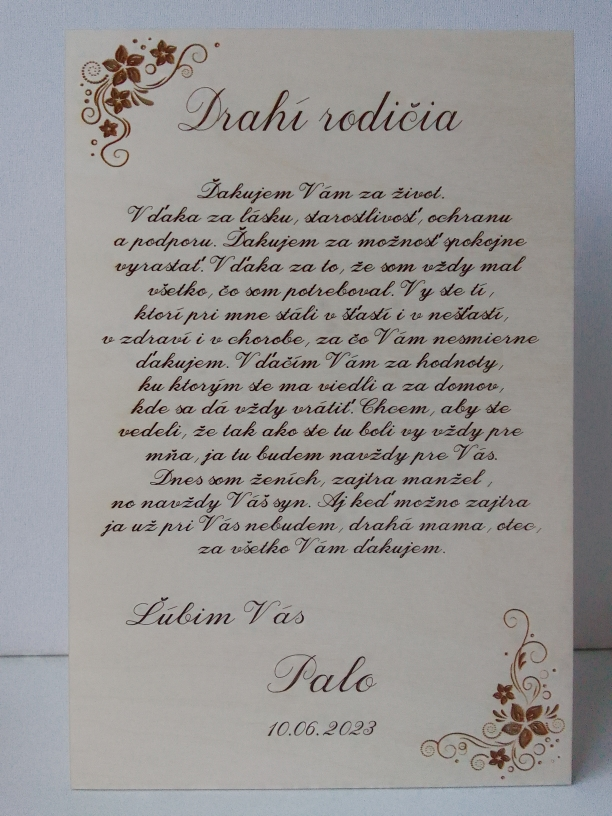 Drahí rodičia
Ďakujem Vám za život.
Vďaka za lásku, starostlivosť, ochranu
a podporu. Ďakujem za možnosť spokojne
vyrastať. Vďaka za to, že som vždy mal
všetko, čo som potreboval. Vy ste tí,
ktorí pri mne stáli v šťastí i v nešťastí,
v zdraví i v chorobe, za čo Vám nesmierne
ďakujem. Vďačím Vám za hodnoty,
ku ktorým ste ma viedli a za domov,
kde sa dá vždy vrátiť. Chcem, aby ste
vedeli, že tak ako ste tu boli vy vždy pre
mňa, ja tu budem navždy pre Vás.
Dnes som ženích, zajtra manžel,
no navždy Váš syn. Aj keď možno zajtra
ja už pri Vás nebudem, drahá mama, otec,
za všetko Vám ďakujem.
Ľúbim Vás
Palo
10.06.2023